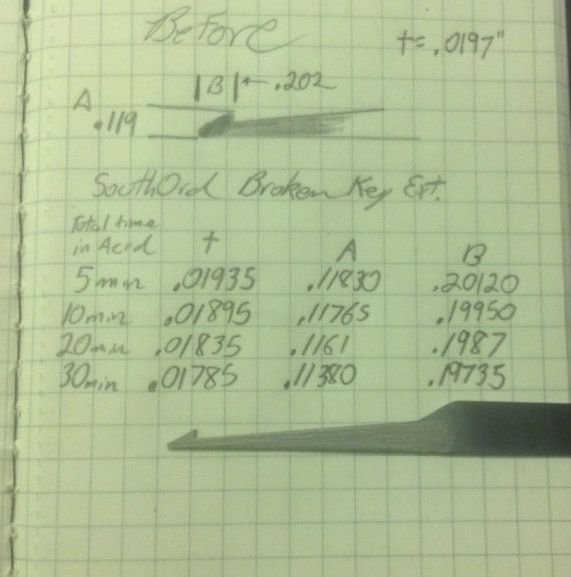 Before
t= .0197"
|B|← .202
A
.119
SouthOrd Broken Key Ext.
Total time
in Acid t A B
5min .01935 .11830 .20120
10min .01895 .11765 .19950
20min .01835 .1161 .1987
30min .01785 .11380 .19735